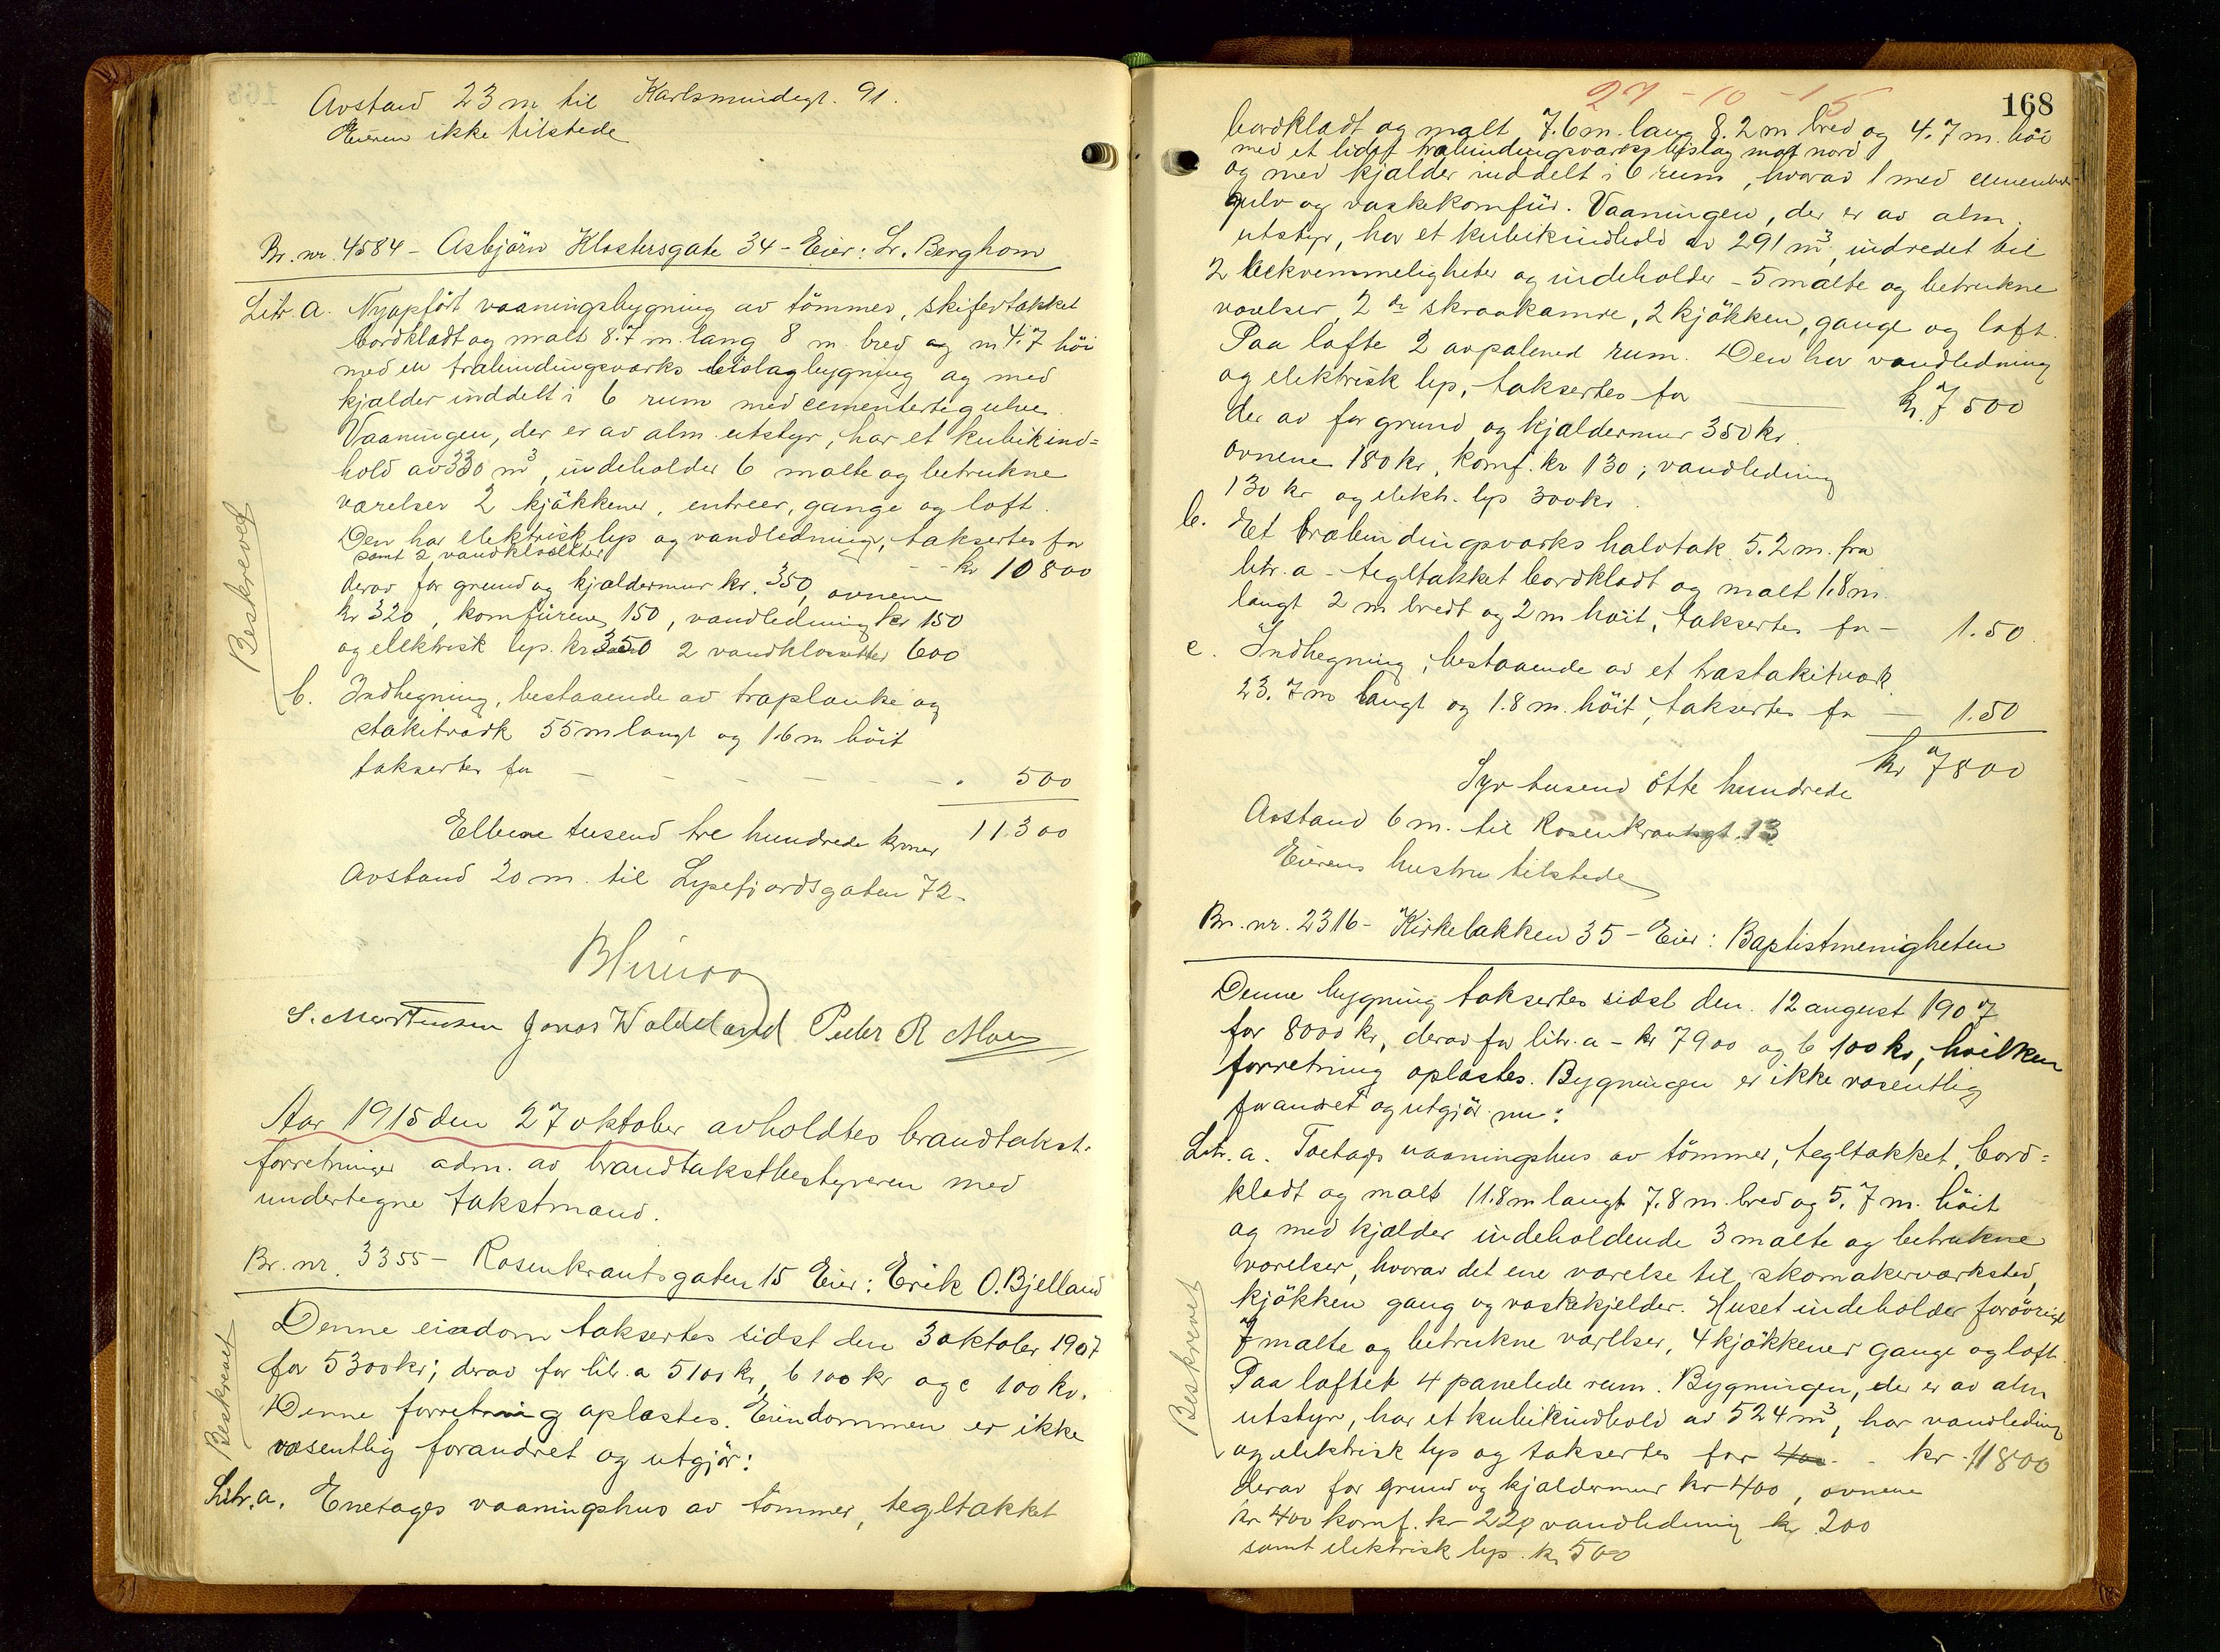 Avstand 23 m til Karlsmindegt. 91.
Eieren ikke tilstede
Br. nr. 4584 - Asbjörn Klostersgate 34 - Eier: Lr. Berghom
Litr. a. Nyopfört vaaningsbygning av tömmer, skifertækket
bordklædt og malt 8.7 m. lang 8 m. bred og m 4.7 höi
med en træbindingsværks bislagbygning og med
kjælder inddelt i 6 rum med cementerte gulve.
Vaaningen, der er av alm. utstyr, har et kubikind=
hold av 330 m³, indeholder 6 malte og betrukne
værelser 2 kjökkener, entreer, gange og loft.
Den har elektrisk lys og vandledning, taksertes for
samt 2 vandklosetter
- - kr 10800
derav for grund og kjældermur kr. 350, ovnene
kr 320, komfürene 150, vandledning kr 150
og elektrisk lys. kr 350 2 vandklosetter 600
b. Indhegning, bestaaende av træplanke og
stakitværk 55 m langt og 1.6 m höit
taksertes for - - - - - - 500
Elleve tusend tre hundrede kroner 11300
Avstand 20 m. til Lysefjordsgaten 72.
Beskrevet
S. Mortensen Jonas Waldeland Peder R Moen
Aar 1915 den 27 oktober avholdtes brandtakst-
forretninger adm. av brandtakstbestyreren med
undertegne takstmænd.
Br. nr. 3355 - Rosenkrantsgaten 15 Eier: Erik O. Bjelland
Denne eiedom taksertes sidst den 3 oktober 1907
for 5300 kr; derav for litr. a 5100 kr, b 100 kr og c 100 kr.
Denne forretning oplæstes. Eiendommen er ikke
væsentlig forandret og utgjör:
Beskrevet
Litr. a. Enetages vaaningshus av tömmer, tegltækket
27-10-15
168
bordklædt og malt 7.6 m. lang 8.2 m bred og 4.7 m. höi
med et lidet træbindingsværks bislag mot nord
og med kjælder inddelt i 6 rum, hvorav 1 med cementert
gulv og vaskekomfür. Vaaningen, der er av alm.
utstyr, har et kubikindhold av 291 m³, indredet til
2 bekvemmeligheter og indeholder - 5 malte og betrukne
værelser, 2 do skraakamre, 2 kjökken, gange og loft.
Paa lofte 2 avpanelet rum. Den har vandledning
og elektrisk lys, taksertes for — kr. 7500
der av for grund og kjældermur 350 kr.
ovnene 180 kr, komf. kr 130; vandledning
130 kr og elektr. lys 300 kr.
b. Et træbindingsværks halvtak 5.2 m. fra
litr. a - tegltækket bordklædt og malt 1.8 m.
langt 2 m bredt og 2 m höit, taksertes for - 1.50.
c. Indhegning, bestaaende av et træstakitværk
23.7 m langt og 1.8 m. höit, taksertes for — 1.50
kr 7800
Syv tusend otte hundrede
Avstand 6 m. til Rosenkrantsgt. 13
Eierens hustru tilstede
Br. nr. 2316 - Kirkebakken 35 - Eier: Baptistmenigheten
Denne bygning taksertes sidst den 12 august 1907
for 8000 kr, derav for litr. a - kr 7900 og b 100 kr, hvilken
forretning oplæstes. Bygningen er ikke væsentlig
forandret og utgjör nu:
Litr. a. Toetages vaaningshus av tömmer, tegltækket, bord=
klædt og malt 11.8 m langt 7.8 m. bred og 5.7 m. höit
og med kjælder indeholdende 3 malte og betrukne
værelser, hvorav det ene værelse til skomakerværksted,
kjökken gang og vaskekjelder. Huset indeholder forövrigt
7 malte og betrukne værelser, 4 kjökkener gange og loft.
Paa loftet 4 panelede rum. Bygningen, der er av alm
utstyr, har et kubikindhold av 524 m³, har vandledning
og elektrisk lys og taksertes for 400 - kr. 11800
derav for grund og kjældermur kr 400, ovnene
kr 400 komf. kr 220 vandledning kr 200
samt elektrisk lys. kr 500
Beskrevet